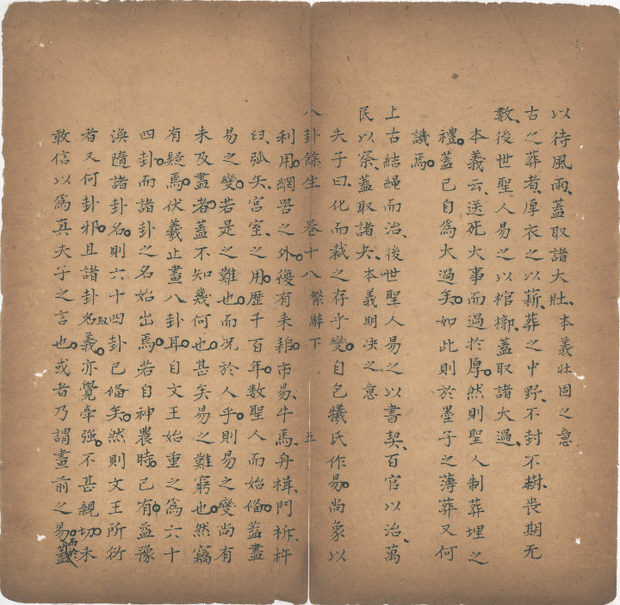 以待風雨蓋取諸大壯本義壯固之意
古之葬者厚衣之以薪葬之中野不封不樹喪期无
數後世聖人易之以棺槨蓋取諸大過
本義云送死大事而過於厚然則聖人制葬埋之
禮蓋已自為大過矣如此則於墨子之薄葬又何
譏焉
上古結繩而治後世聖人易之以書契百官以治萬
民以察蓋取諸夬本義明決之意
夫子曰化而裁之存乎變自包犧氏作易尚象以
八卦餘生 卷十八 繫辭下 五
利用網罟之外復有耒耜市易牛馬舟楫門柝杵
臼弧矢宮室之用歷千百年數聖人而始備蓋盡
易之變若是之難也而況於人乎則易之變尚有
未及盡者蓋不知幾何也甚矣易之難窮也然竊
有疑焉伏羲止畫八卦耳自文王始重之為六十
四卦而諸卦之名始出焉若自神農時已有益豫
渙隨諸卦名則六十四卦已備矣然則文王所衍
者又何卦邪且諸卦名取義亦覺牽強不甚親切未
敢信以為真夫子之言也或者乃謂畫前之易蓋